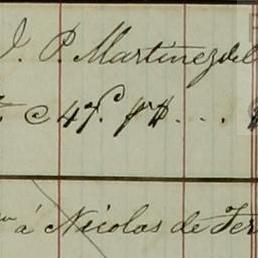 J. P. Martinez del
c 47. p$ ...
á Nicolas de Fer